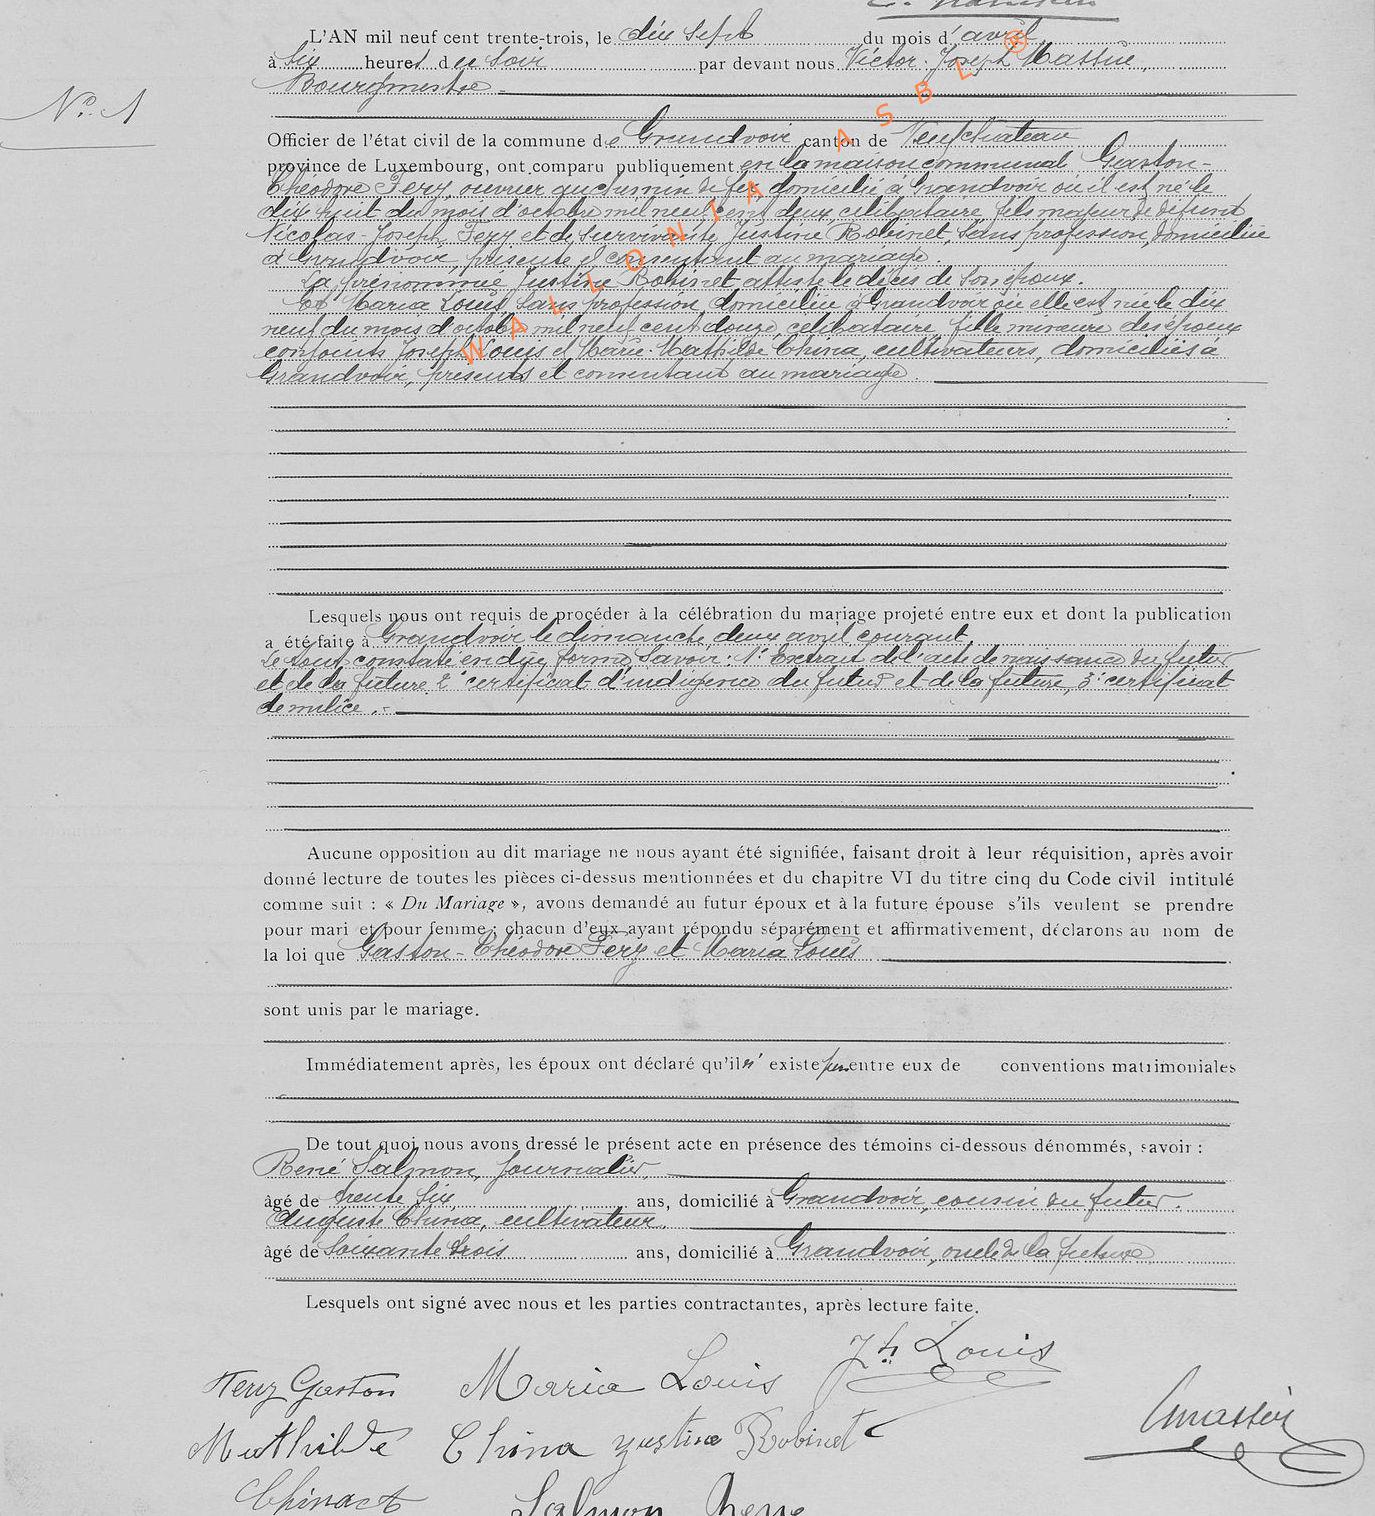 L'AN mil neuf cent trente-trois, le dix sept du mois d'avril
à six heures du soir par devant nous Victor Joseph Massin,
Bourgmestre
N° 1
Officier de l'état civil de la commune de Grandvoir canton de Neufchateau
province de Luxembourg, ont comparu publiquement en la maison communal Gaston-
Théodore Fery, ouvrier au chemin de fer, domicilié à Grandvoir où il est né le
dix huit du mois d'octobre mil neuf cent deux célibataire, fils majeur de défunt
Nicolas-Joseph Fery et de survivante Justine Robinet, sans profession, domiciliée
à Grandvoir, présente et consentant au mariage.
La prénommée Justine Robinet atteste le décès de son époux.
Et Maria Louis, sans profession, domiciliée à Grandvoir où elle est née le dix
neuf du mois d'octobre mil neuf cent douze, célibataire, fille mineure des époux
conjoints Joseph Louis et Marie-Mathilde China, cultivateurs, domiciliés à
Grandvoir, présents et consentant au mariage.
WALLONIA ASBL ®
Lesquels nous ont requis de procéder à la célébration du mariage projeté entre eux et dont la publication
a été faite à Grandvoir le dimanche deux avril courant
Le tout constaté en due forme, savoir: 1° Extrait de l'acte de naissance du futur
et de la future 2° certificat d'indigence du futur et de la future, 3° certificat
de milice.-
Aucune opposition au dit mariage ne nous ayant été signifiée, faisant droit à leur réquisition, après avoir
donné lecture de toutes les pièces ci-dessus mentionnées et du chapitre VI du titre cinq du Code civil intitulé
comme suit : « Du Mariage », avons demandé au futur époux et à la future épouse s'ils veulent se prendre
pour mari et pour femme ; chacun d'eux ayant répondu séparément et affirmativement, déclarons au nom de
la loi que Gaston-Théodore Fery et Maria Louis
sont unis par le mariage.
Immédiatement après, les époux ont déclaré qu'il n' existe pas entre eux de conventions matrimoniales
De tout quoi nous avons dressé le présent acte en présence des témoins ci-dessous dénommés, savoir :
René Salmon, journalier,
âgé de trente six, ans, domicilié à Grandvoir, cousin du futur.
Auguste China, cultivateur,
âgé de Soixante trois ans, domicilié à Grandvoir, oncle de la future
Lesquels ont signé avec nous et les parties contractantes, après lecture faite.
Jh Louis
Fery Gaston Maria Louis
VMassin
Mathilde China Justine Robinet
China A Salmon Rene